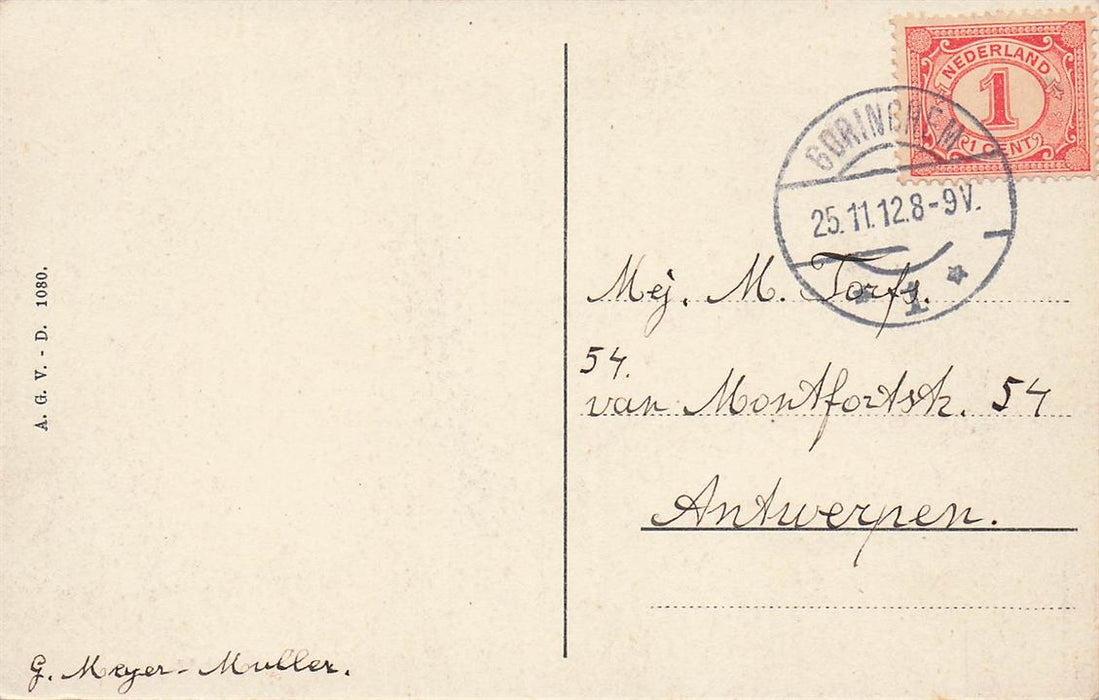 NEDERLAND
1
1 CENT
GORINCHEM
25.11.12.8-9V.
1
Mej. M. Torfs.
54.
van Montfortstr. 54
Antwerpen.
A. G. V. - D. 1080.
G. Meyer-Muller.